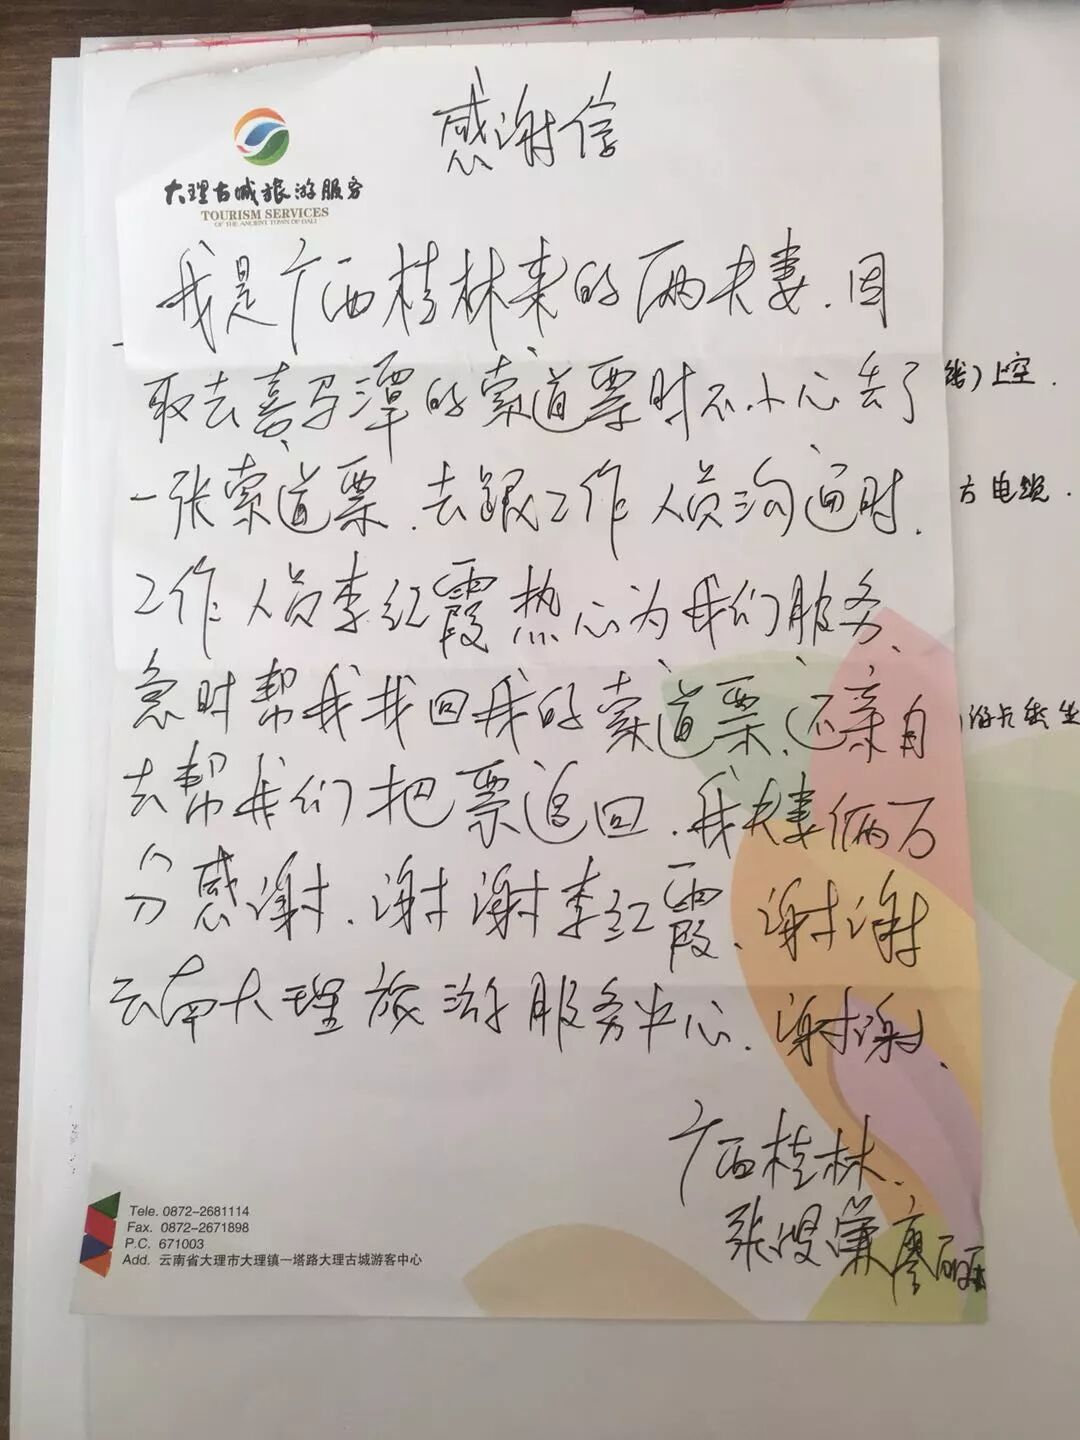 感谢信
大理古城旅游服务
TOURISM SERVICES
OF THE ANCIENT TOWN OF DALI
我是广西桂林来的俩夫妻.因
取去喜马潭的索道票时不小心丢了
一张索道票.去跟工作人员沟通时.
工作人员李红霞热心为我们服务.
急时帮我找回我的索道票.还亲自
去帮我们把票追回.我夫妻俩万
分感谢.谢谢李红霞.谢谢
云南大理旅游服务中心.谢谢.
广西桂林.
张 廖丽
上空.
方电缆.
Tele. 0872-2681114
Fax. 0872-2671898
P.C. 671003
Add. 云南省大理市大理镇一塔路大理古城游客中心